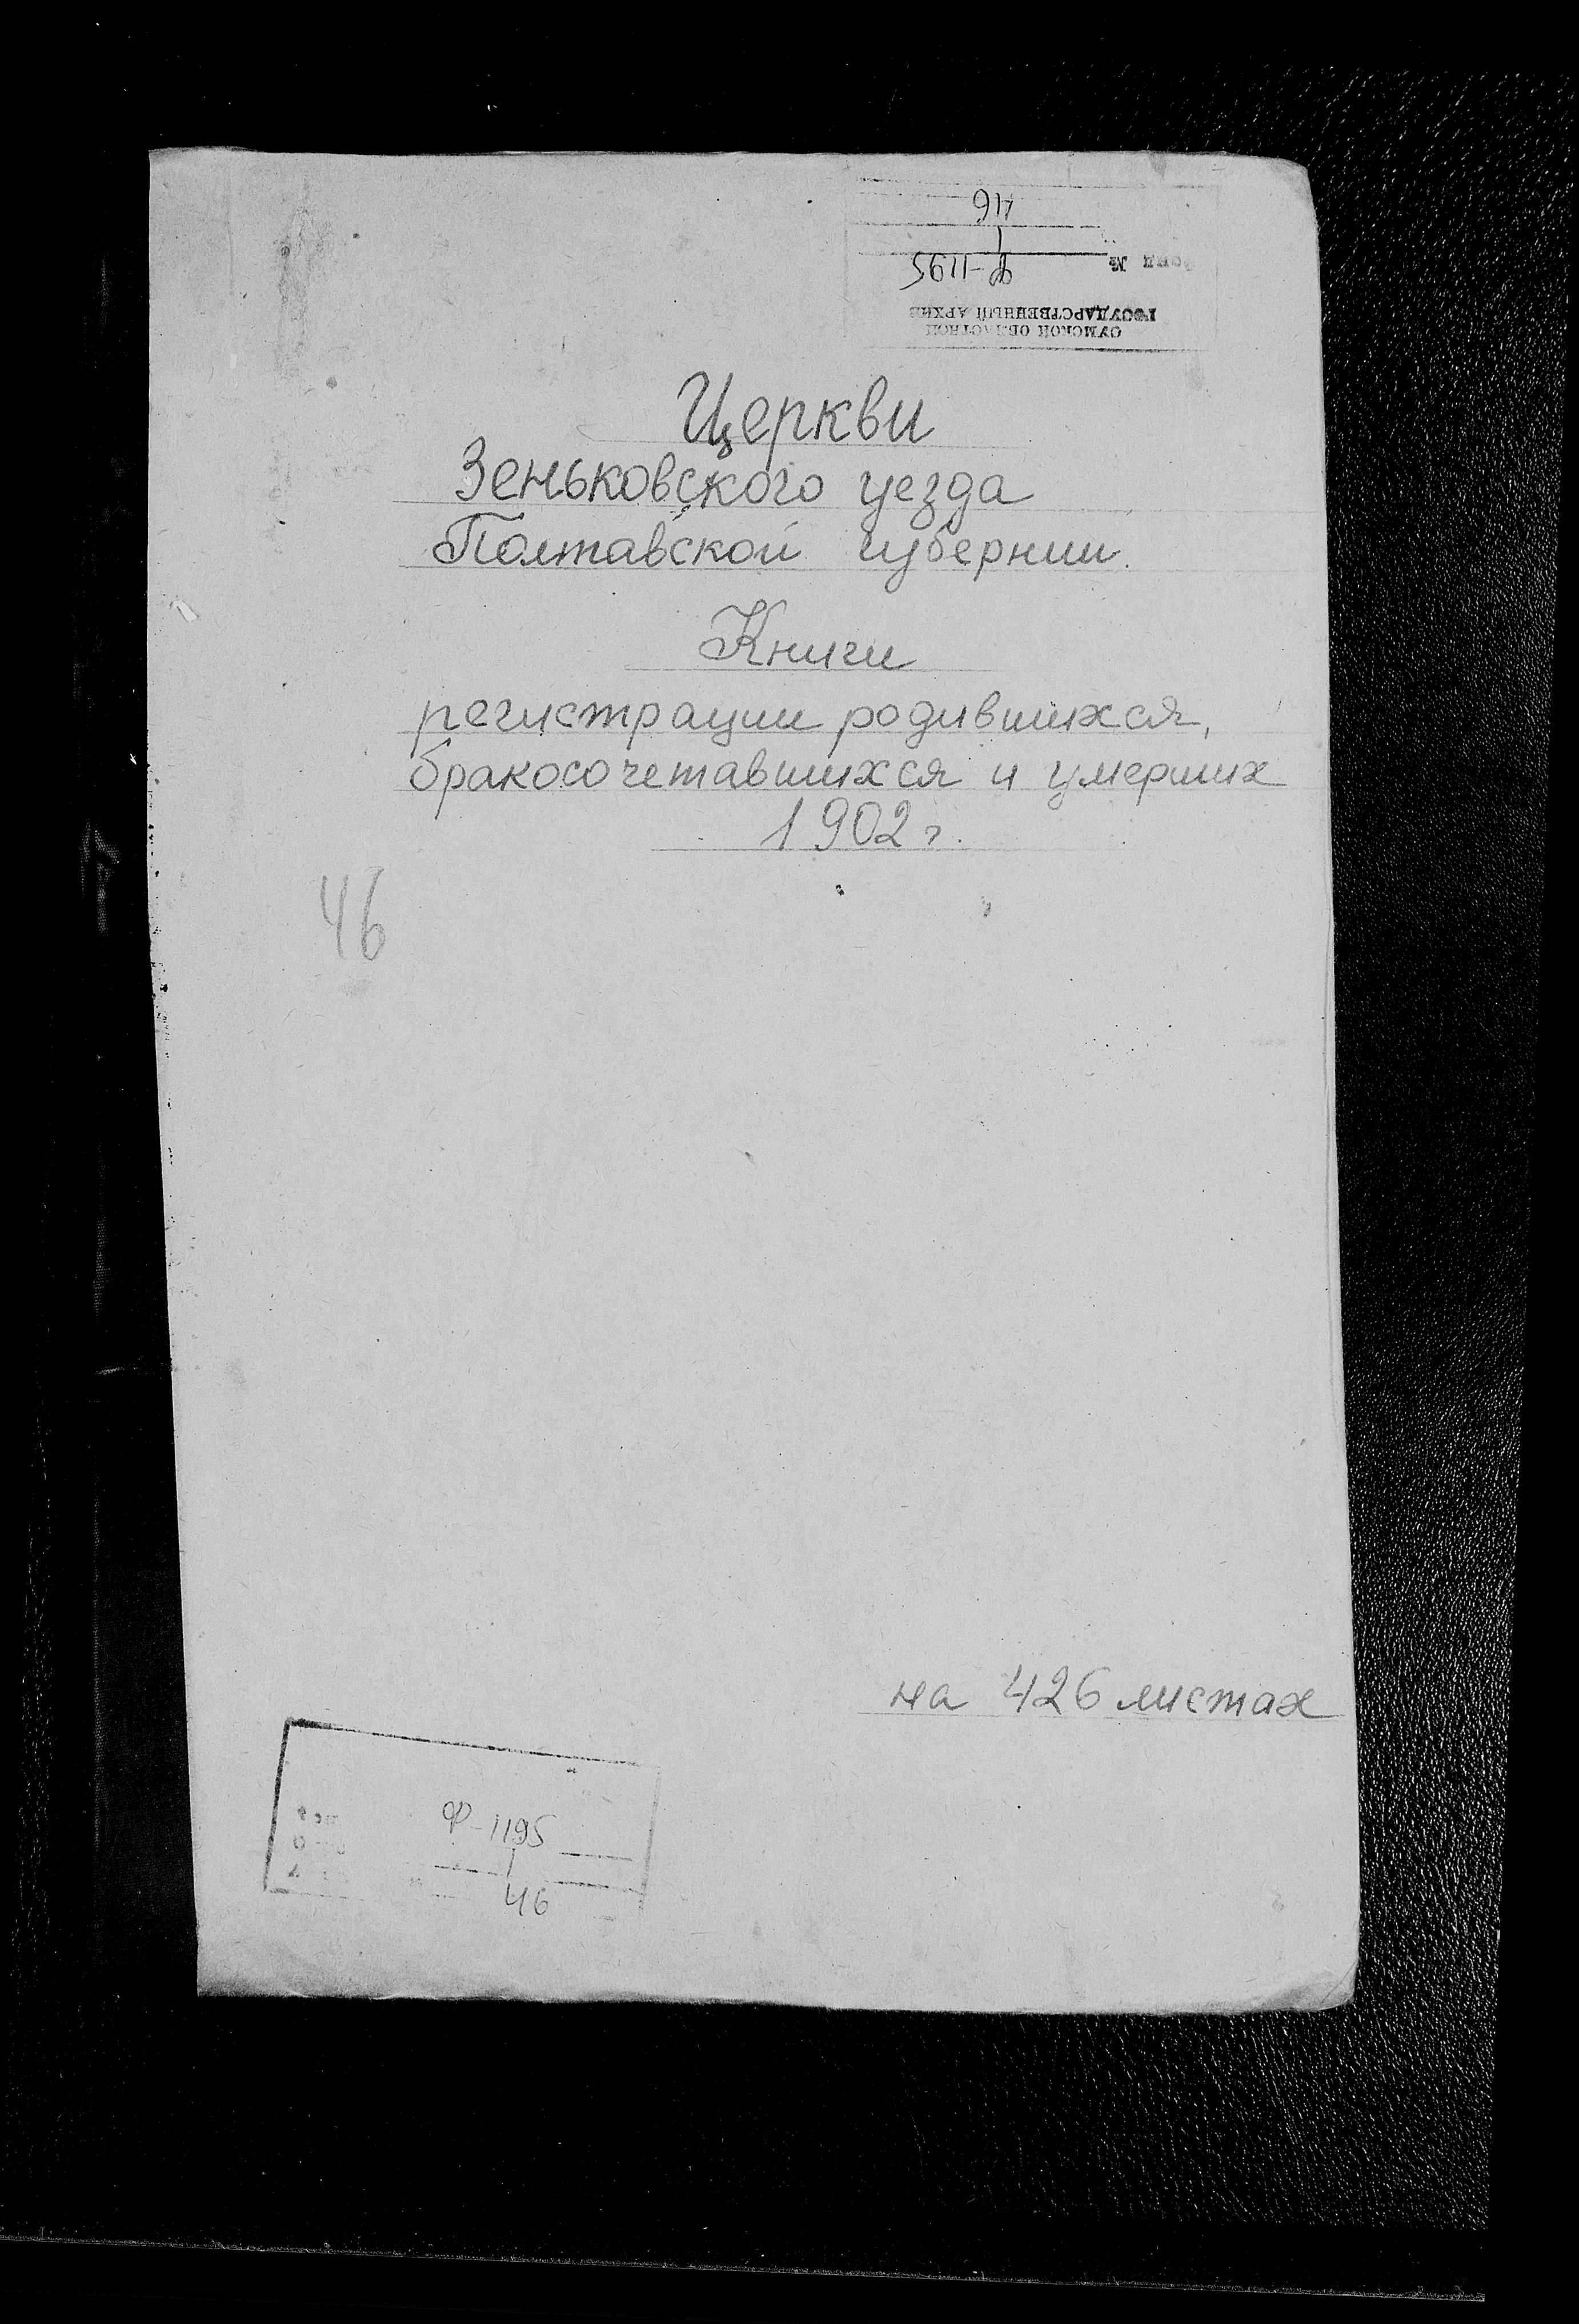 СУМСКОЙ ОБЛАСТНОЙ
ГОСУДАРСТВЕННЫЙ АРХИВ
Фонд № Ф-1195
1
46
Церкви
Зеньковского уезда
Полтавской губернии.
Книги
регистрации родившихся,
бракосочетавшихся и умерших
1902 г.
46
на 426 листах
Ф-1195
1
46